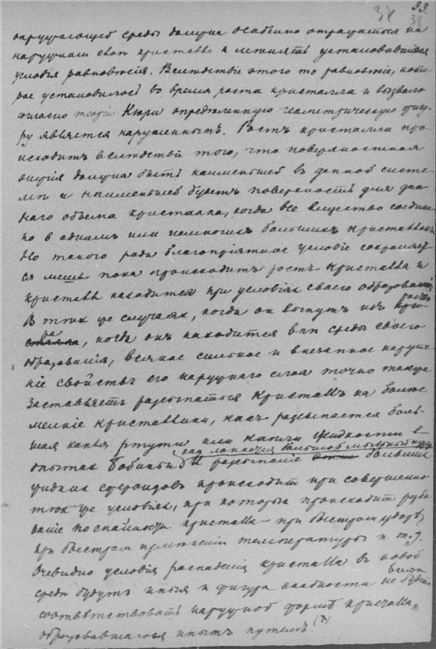 38 33.
38
окружающей среды должна особенно отражаться на
наружном слое кристалла и менять установившіяся
условія равновѣсія. Вслѣдствіе этого то равновѣсіе, кото-
рое установилось во время роста кристалла и вызвало
согласно теоріи Кюри опредѣленную геометрическую фигу-
ру является нарушеннымъ. Ростъ кристалла про-
исходитъ вслѣдствіе того, что поверхностная
энергія должна быть наименьшей въ данной систе-
мѣ и наименьшей будетъ поверхность для дан-
наго объема кристалла, когда все вещество соедине-
но в одномъ или немногихъ большихъ кристаллахъ.
Но такого рода благопріятное условіе сохраняет-
ся лишь пока происходитъ ростъ кристалла и
кристаллъ находится при условіяхъ своего образованія.
В тѣхъ же случаяхъ, когда он вынутъ изъ
, когда онъ находится внѣ среды своего
образованія, всякое сильное и внезапное наруше-
ніе свойствъ его наружнаго слоя точно также
заставляетъ распасться кристаллъ на болѣе
мелкіе кристаллики, какъ распадается боль-
шая капля ртути или капли жидкости в
опытахъ распаденіе большихъ
жидкихъ сфероидовъ происходит при совершенно
тѣхъ же условіяхъ, при которыхъ происходит
по спайности кристалла — при быстромъ ударѣ,
при быстромъ измѣненіи температуры и т. д.
Очевидно условія распаденія кристалла въ новой
средѣ будутъ иныя и фигура спайности не будетъ вполнѣ
соотвѣтствовать наружной формѣ кристалла,
образовавшагося инымъ путемъ.